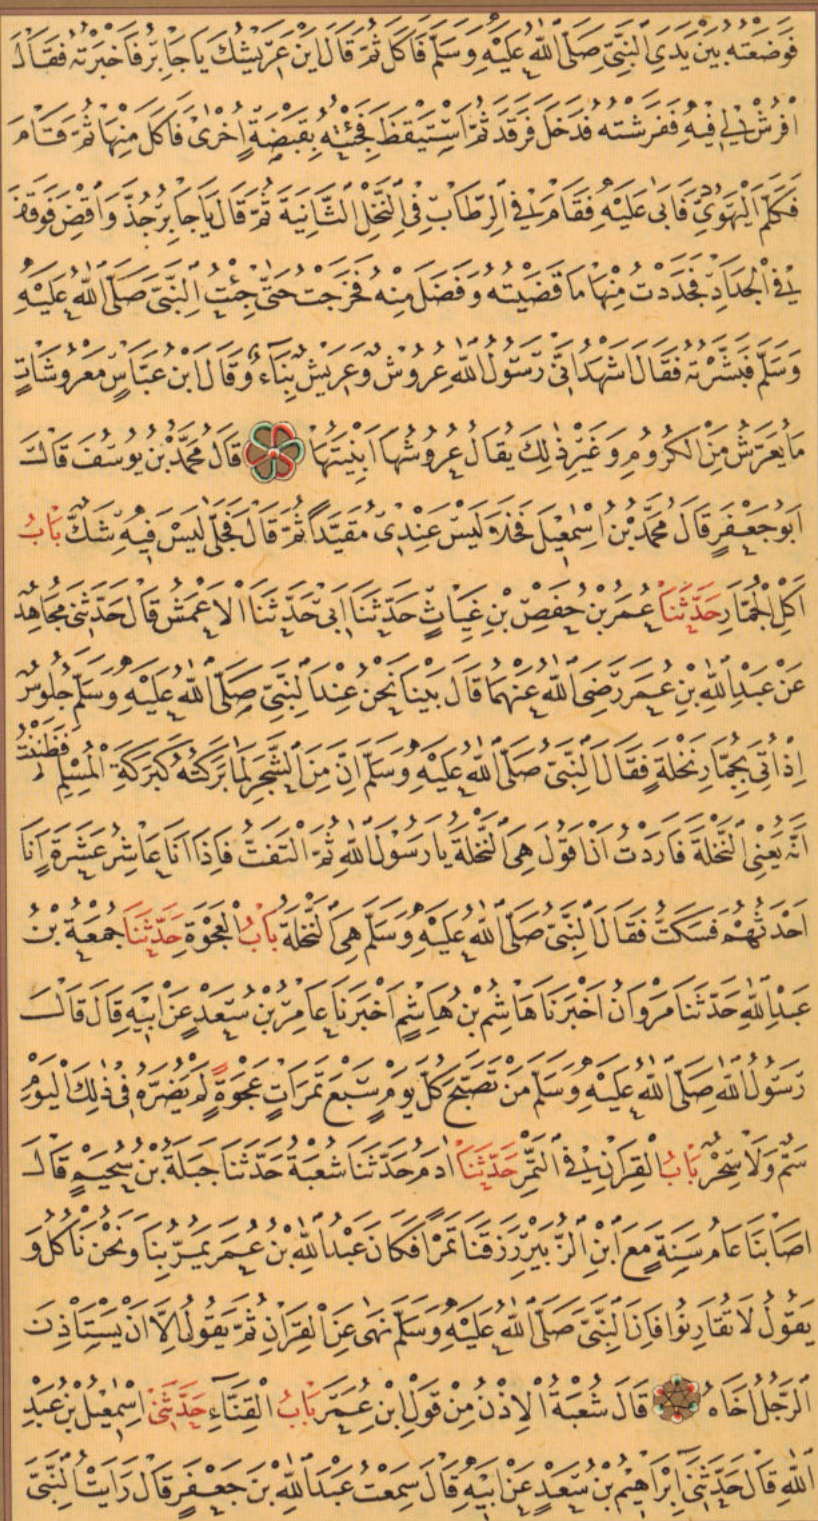 فَوَضَعْتُهُ بَيْنَ يَدَيِ النَّبِيِّ صَلَّى اللّٰهُ عَلَيْهِ وَسَلَّمَ فَاَكَلَ ثُمَّ قَالَ اَيْنَ عَرِيشُكَ يَا جَابِرُ فَاَخْبَرْتُهُ فَقَالَ
افْرُشْ لِي فِيهِ فَفَرَشْتُهُ فَدَخَلَ فَرَقَدَ ثُمَّ اسْتَيْقَظَ فَجِئْتُهُ بِقَبْضَةٍ اُخْرَى فَاَكَلَ مِنْهَا ثُمَّ قَامَ
فَكَلَّمَ الْيَهُودِيَّ فَاَبَى عَلَيْهِ فَقَامَ فِي الرِّطَابِ فِي النَّخْلِ الثَّانِيَةَ ثُمَّ قَالَ يَا جَابِرُ جُذَّ وَاقْضِ فَوَقَفَ
فِي الْجَدَادِ فَجَدَدْتُ مِنْهَا مَا قَضَيْتُهُ وَفَضَلَ مِنْهُ فَخَرَجْتُ حَتَّى جِئْتُ النَّبِيَّ صَلَّى اللّٰهُ عَلَيْهِ
وَسَلَّمَ فَبَشَّرْتُهُ فَقَالَ اَشْهَدُ اَنِّي رَسُولُ اللّٰهِ عُرُوشٌ وَعَرِيشٌ بِنَاءٌ وَقَالَ ابْنُ عَبَّاسٍ مَعْرُوشَاتٍ
مَا يُعَرَّشُ مِنَ الْكُرُومِ وَغَيْرِ ذٰلِكَ يُقَالُ عُرُوشُهَا اَبْنِيَتُهَا قَالَ مُحَمَّدُ بْنُ يُوسُفَ قَالَ
اَبُو جَعْفَرٍ قَالَ مُحَمَّدُ بْنُ اِسْمٰعِيلَ فَخَلَا لَيْسَ عِنْدِي مُقَيَّدًا ثُمَّ قَالَ فَجَلَّى لَيْسَ فِيهِ شَكٌّ بَابُ
اَكْلِ الْجُمَّارِ حَدَّثَنَا عُمَرُ بْنُ حَفْصِ بْنِ غِيَاثٍ حَدَّثَنَا اَبِي حَدَّثَنَا الْاَعْمَشُ قَالَ حَدَّثَنِي مُجَاهِدٌ
عَنْ عَبْدِ اللّٰهِ بْنِ عُمَرَ رَضِيَ اللّٰهُ عَنْهُمَا قَالَ بَيْنَا نَحْنُ عِنْدَ النَّبِيِّ صَلَّى اللّٰهُ عَلَيْهِ وَسَلَّمَ جُلُوسٌ
اِذْ اُتِيَ بِجُمَّارِ نَخْلَةٍ فَقَالَ النَّبِيُّ صَلَّى اللّٰهُ عَلَيْهِ وَسَلَّمَ اِنَّ مِنَ الشَّجَرِ لَمَا بَرَكَتُهُ كَبَرَكَةِ الْمُسْلِمِ فَظَنَنْتُ
اَنَّهُ يَعْنِي النَّخْلَةَ فَاَرَدْتُ اَنْ اَقُولَ هِيَ النَّخْلَةُ يَا رَسُولَ اللّٰهِ ثُمَّ الْتَفَتُّ فَاِذَا اَنَا عَاشِرُ عَشَرَةٍ اَنَا
اَحْدَثُهُمْ فَسَكَتُّ فَقَالَ النَّبِيُّ صَلَّى اللّٰهُ عَلَيْهِ وَسَلَّمَ هِيَ النَّخْلَةُ بَابُ الْعَجْوَةِ حَدَّثَنَا جُمْعَةُ بْنُ
عَبْدِ اللّٰهِ حَدَّثَنَا مَرْوَانُ اَخْبَرَنَا هَاشِمُ بْنُ هَاشِمٍ اَخْبَرَنَا عَامِرُ بْنُ سَعْدٍ عَنْ اَبِيهِ قَالَ قَالَ
رَسُولُ اللّٰهِ صَلَّى اللّٰهُ عَلَيْهِ وَسَلَّمَ مَنْ تَصَبَّحَ كُلَّ يَوْمٍ سَبْعَ تَمَرَاتٍ عَجْوَةٍ لَمْ يَضُرَّهُ فِي ذٰلِكَ الْيَوْمِ
سَمٌّ وَلَا سِحْرٌ بَابُ الْقِرَانِ فِي التَّمْرِ حَدَّثَنَا اٰدَمُ حَدَّثَنَا شُعْبَةُ حَدَّثَنَا جَبَلَةُ بْنُ سُحَيْمٍ قَالَ
اَصَابَنَا عَامُ سَنَةٍ مَعَ ابْنِ الزُّبَيْرِ رَزَقَنَا تَمْرًا فَكَانَ عَبْدُ اللّٰهِ بْنُ عُمَرَ يَمُرُّ بِنَا وَنَحْنُ نَاْكُلُ وَ
يَقُولُ لَا تُقَارِنُوا فَاِنَّ النَّبِيَّ صَلَّى اللّٰهُ عَلَيْهِ وَسَلَّمَ نَهَى عَنِ الْقِرَانِ ثُمَّ يَقُولُ اِلَّا اَنْ يَسْتَاْذِنَ
الرَّجُلُ اَخَاهُ قَالَ شُعْبَةُ الْاِذْنُ مِنْ قَوْلِ ابْنِ عُمَرَ بَابُ الْقِثَّاءِ حَدَّثَنِي اِسْمٰعِيلُ بْنُ عَبْدِ
اللّٰهِ قَالَ حَدَّثَنِي اِبْرَاهِيمُ بْنُ سَعْدٍ عَنْ اَبِيهِ قَالَ سَمِعْتُ عَبْدَ اللّٰهِ بْنَ جَعْفَرٍ قَالَ رَاَيْتُ النَّبِيَّ